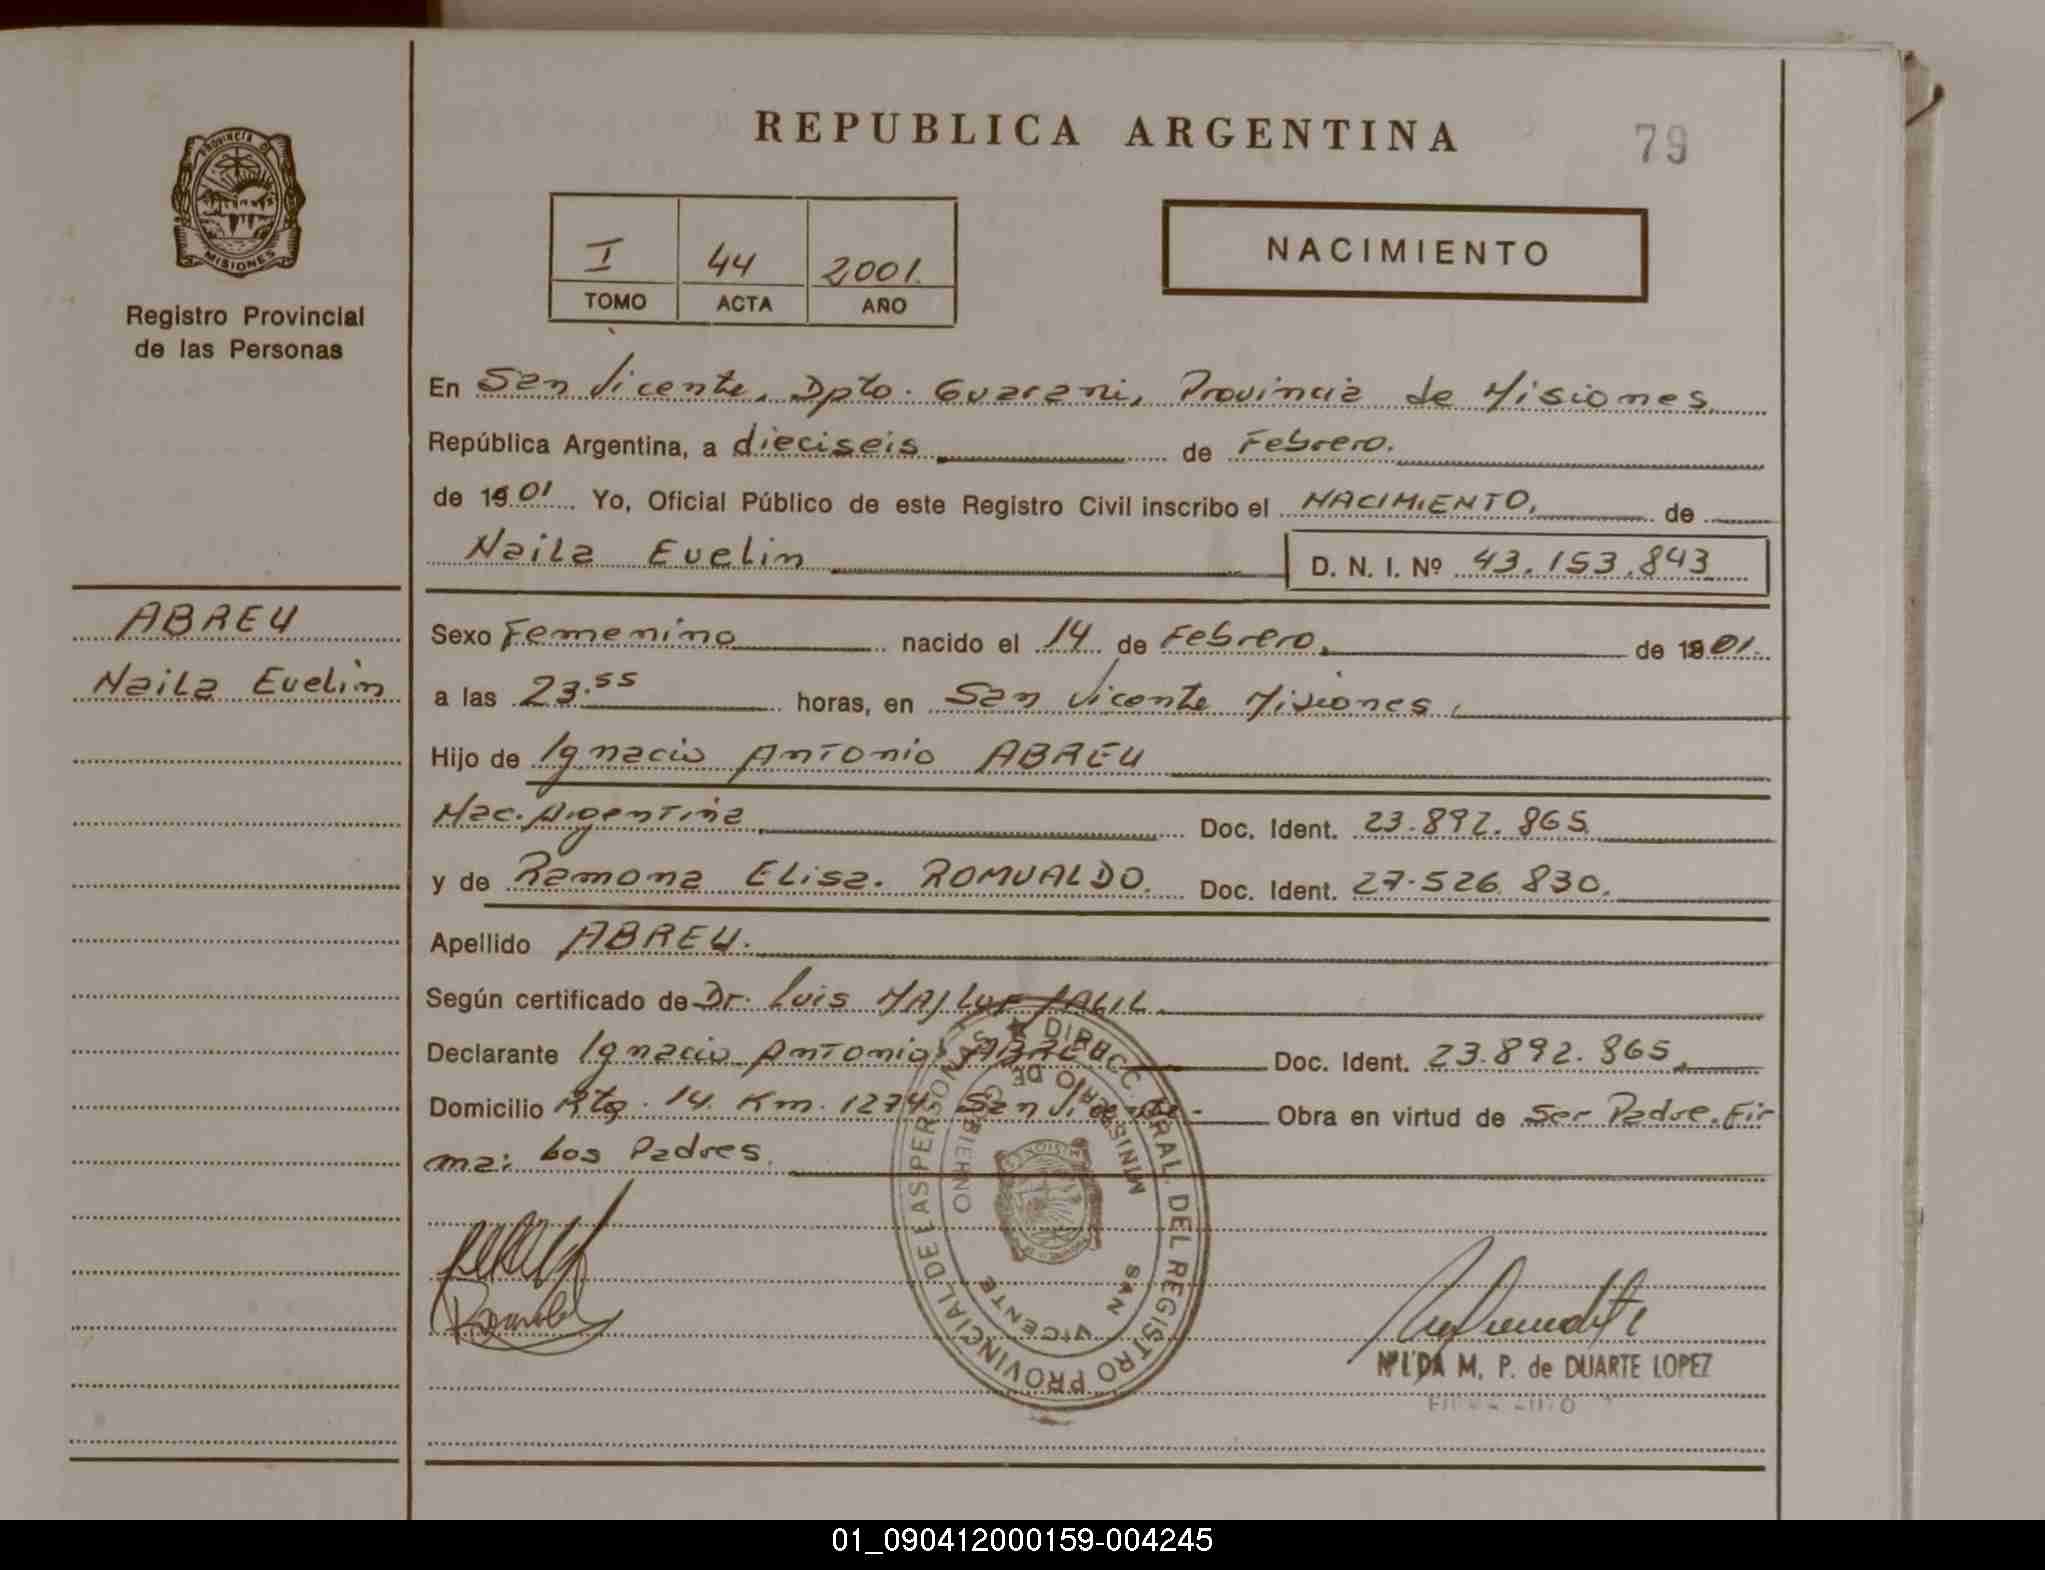 REPUBLICA ARGENTINA
79
PROVINCIA D
MISIONES
Registro Provincial
de las Personas
I 44 2,001.
TOMO ACTA AÑO
NACIMIENTO
En San Vicente, Dpto. Guarani, Provincia de Misiones
República Argentina, a dieciseis de Febrero.
de 1901 Yo, Oficial Público de este Registro Civil inscribo el NACIMIENTO, de
Naila Evelin D. N. I. Nº 43.153.843
ABREU
Naila Evelin
Sexo Femenino nacido el 14 de Febrero, de 1901.
a las 23.55 horas, en San Vicente Misiones,
Hijo de Ignacio Antonio ABREU
Nac. Argentina Doc. Ident. 23.892.865
y de Ramona Elisa. ROMUALDO. Doc. Ident. 27.526.830.
Apellido ABREU.
Según certificado de Dr. Luis JALIL
Declarante Ignacio Antonio ABREU Doc. Ident. 23.892.865,
Domicilio Rta. 14. Km. 1274. San Vicente.- Obra en virtud de Ser Padre. Fir
ma: Los Padres.
DIRECC. GRAL. DEL REGISTRO PROVINCIAL DE LAS PERSONAS
MINISTERIO DE GOBIERNO
SAN VICENTE
MISIONES
NILDA M. P. de DUARTE LOPEZ
01_090412000159-004245